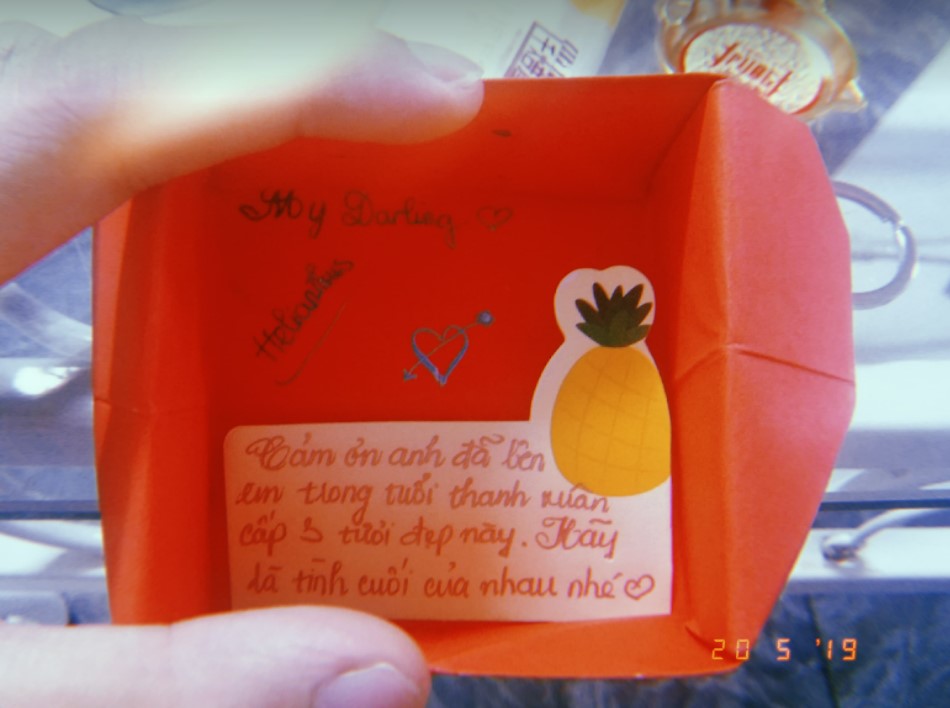 My Darling ♡
Cảm ơn anh đã bên
em trong tuổi thanh xuân
cấp 3 tươi đẹp này. Hãy
là tình cuối của nhau nhé ♡
20 5 '19